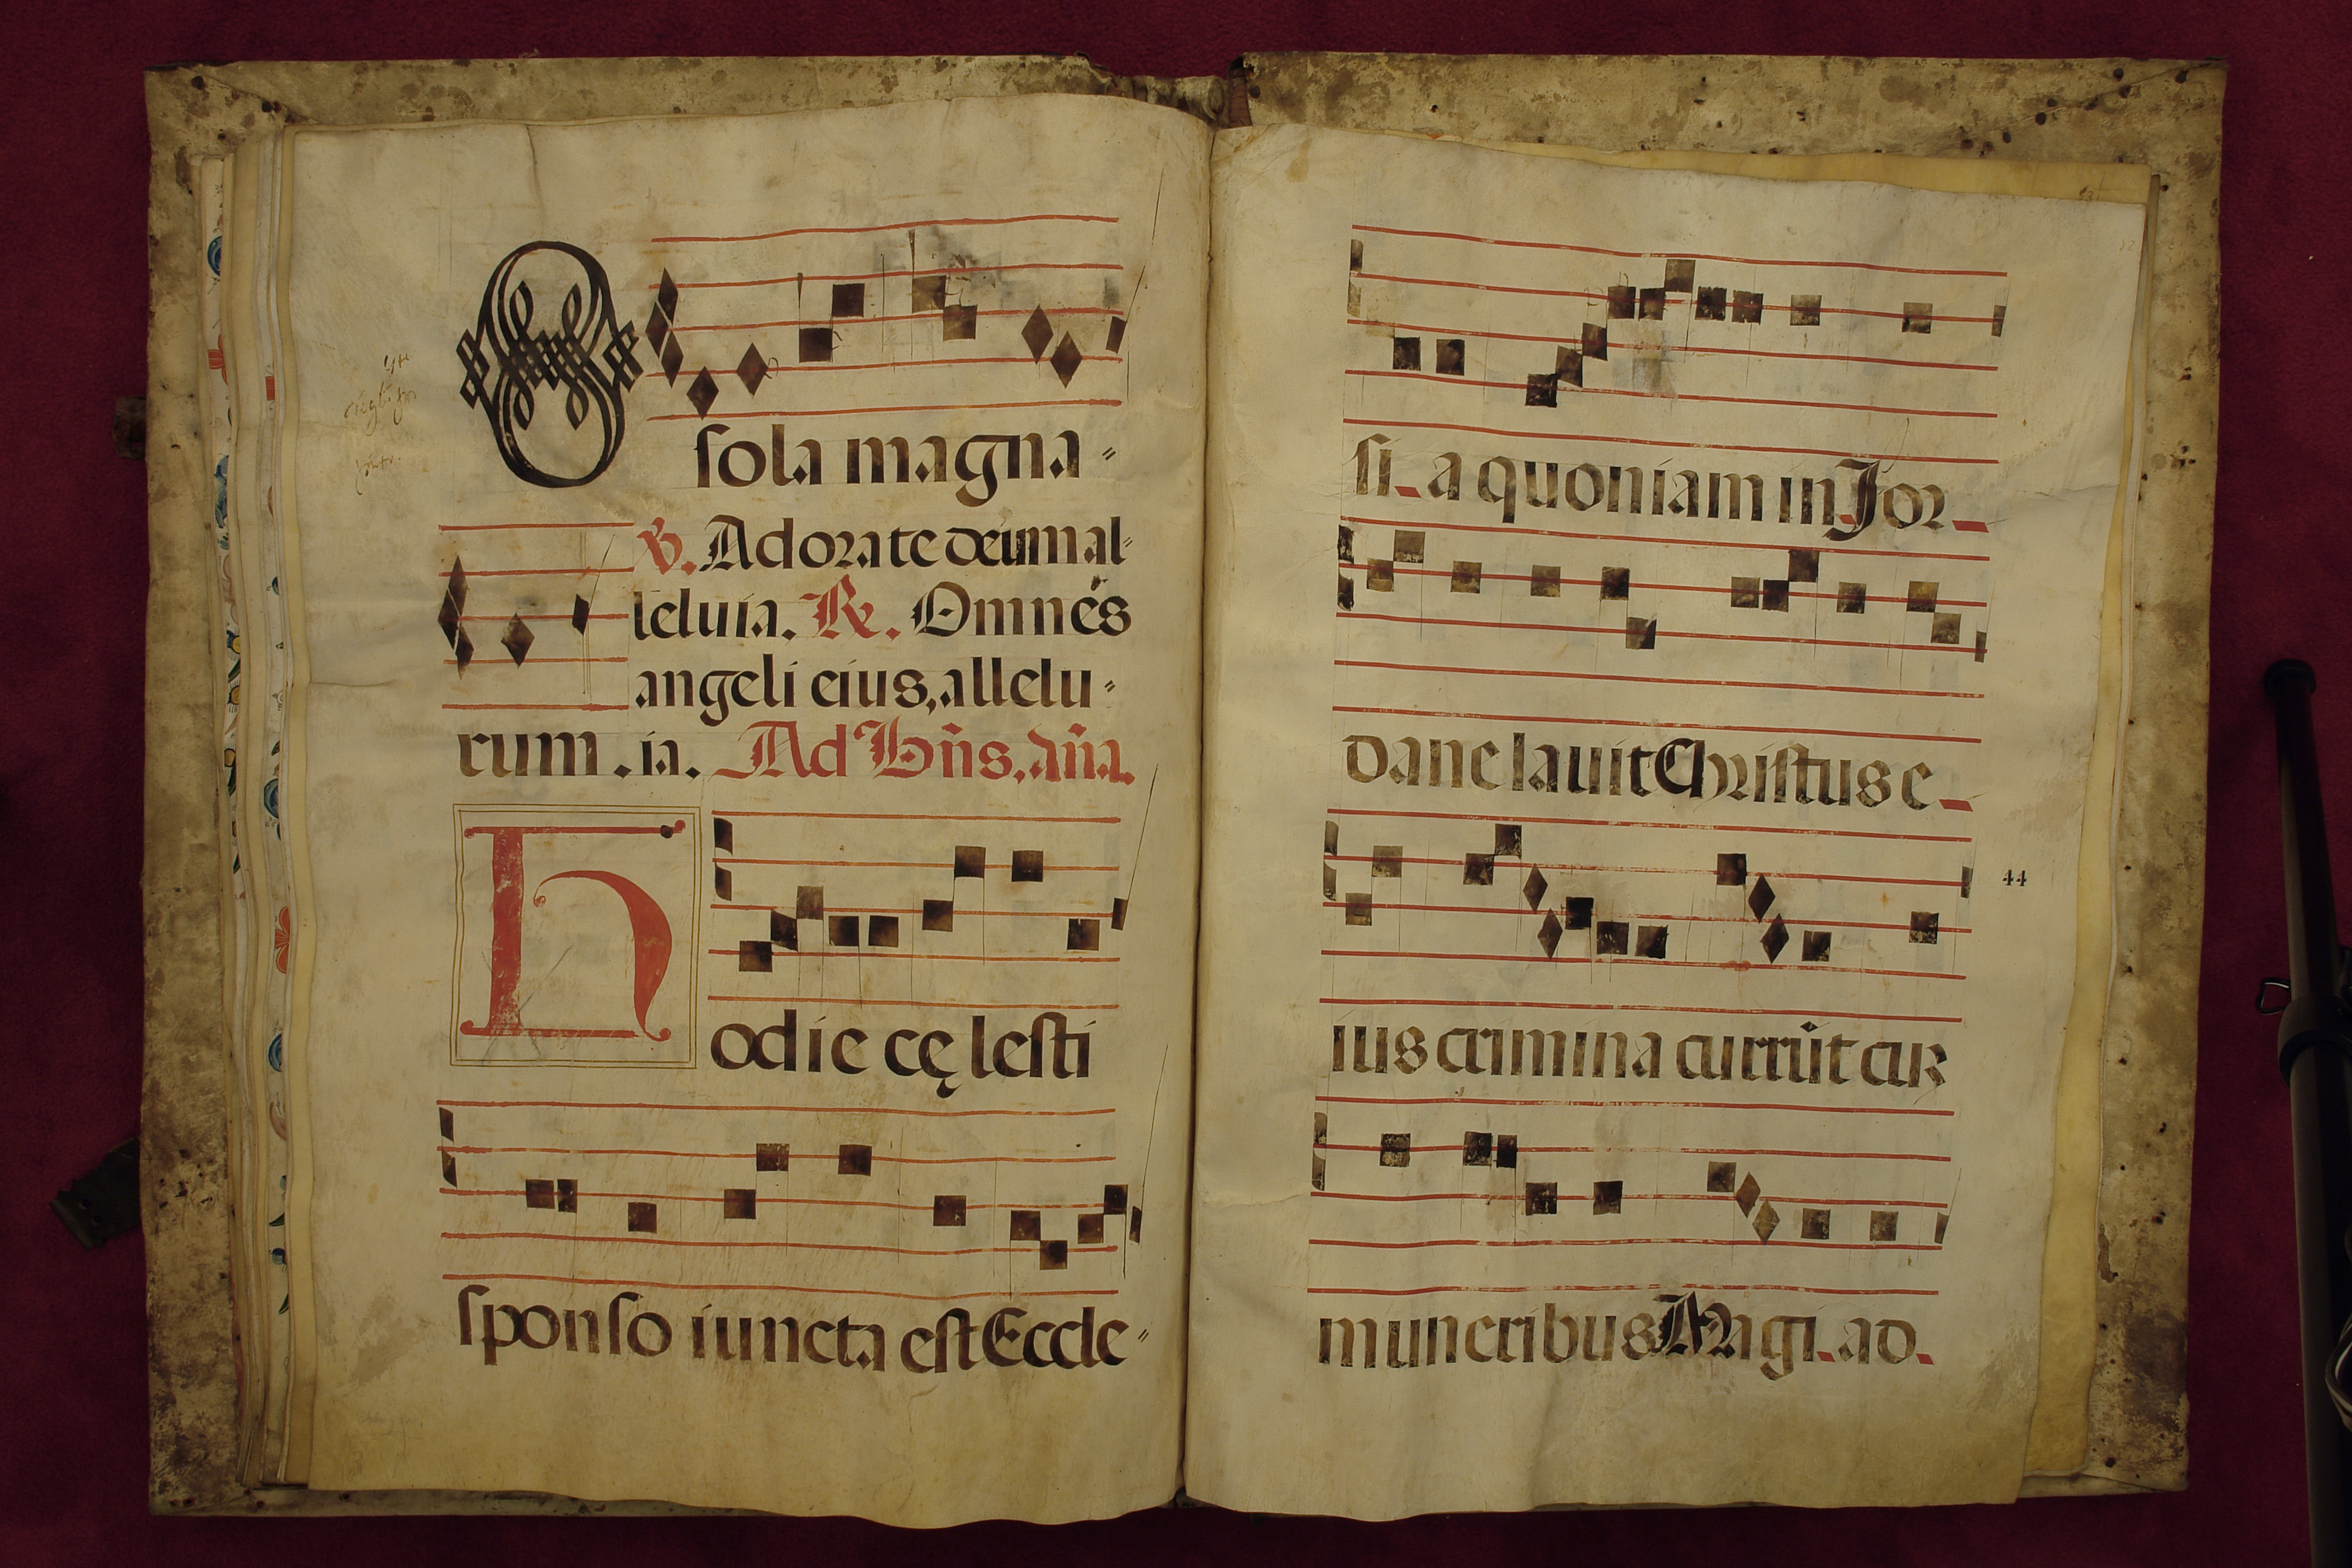 O sola magna-
℣. Adorate deum al-
leluia. ℟. Omnes
angeli eius, allelu-
rum. ia. Ad Bn̄s. añā.
Hodie cę lesti
sponso iuncta est Eccle-
si_a quoniam in Jor_
dane lauit Christus e_
44
ius crimina currūt cur
muneribus Magi. ad.